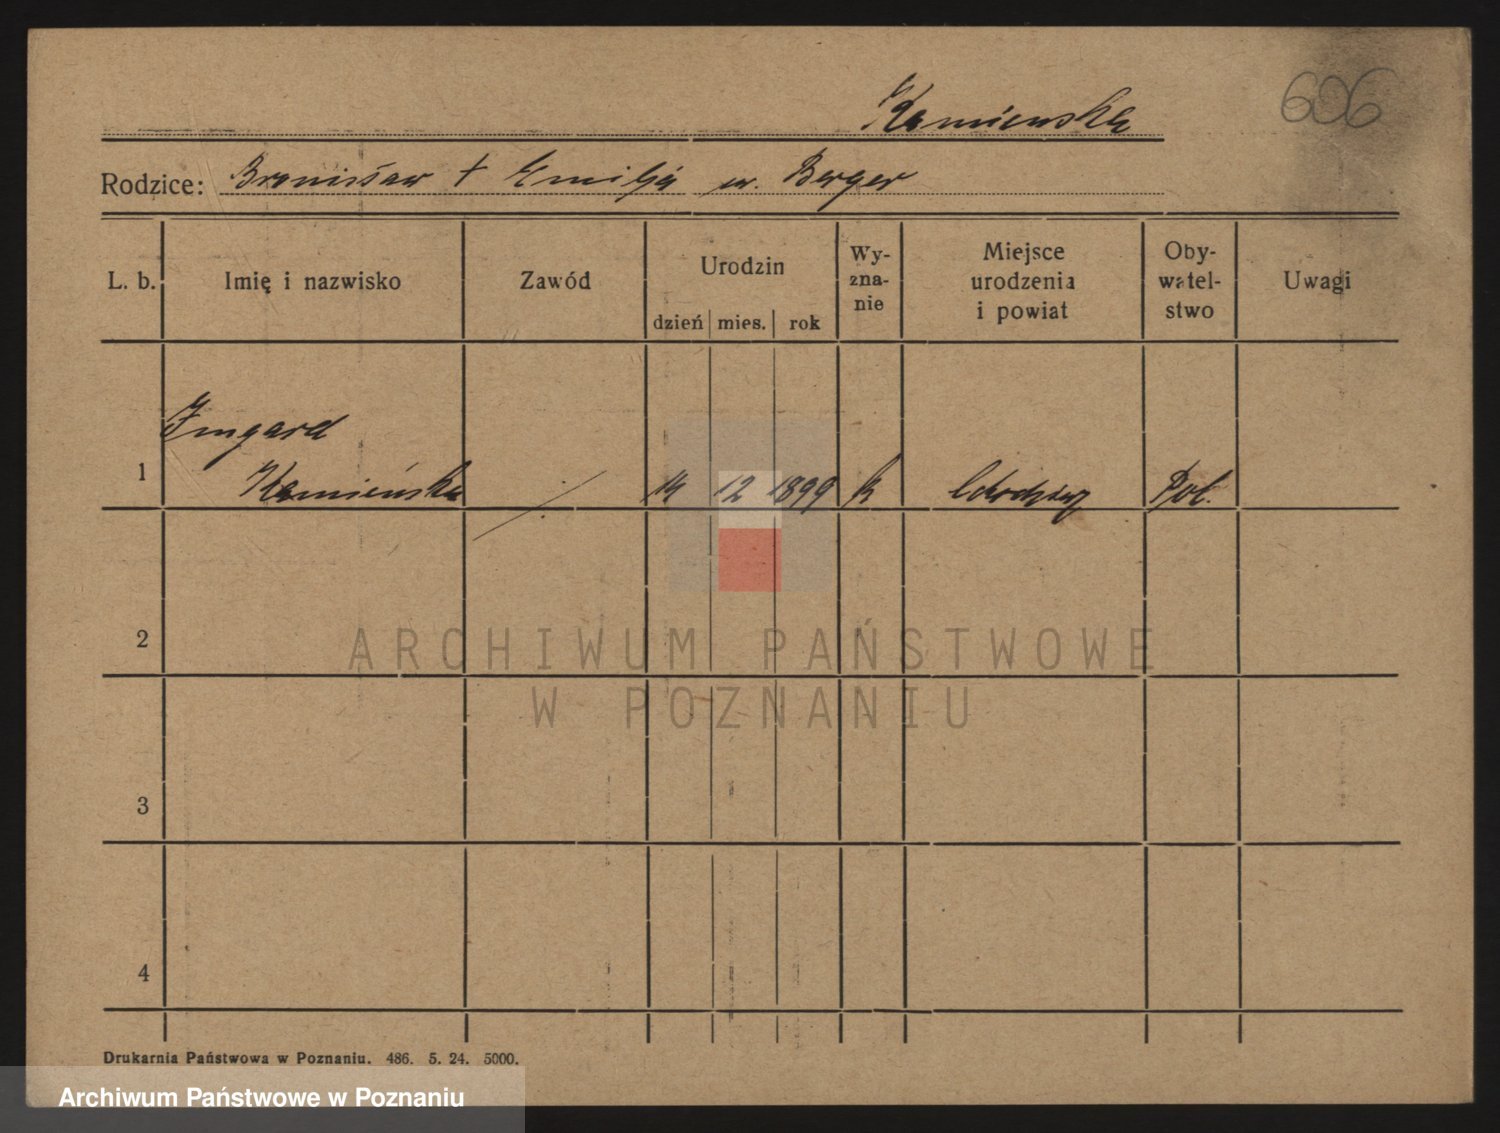 606
Kamienska
Rodzice: Bronisław + Emilja ur. Berger
L. b. Imię i nazwisko Zawód Urodzin Wy-zna-nie Miejsce urodzenia i powiat Oby-watel-stwo Uwagi
dzień mies. rok
Irmgard
1 Kamieńska 14 12 1899 k Chodzież Pol.
2
3
4
ARCHIWUM PAŃSTWOWE
W POZNANIU
Drukarnia Państwowa w Poznaniu. 486. 5. 24. 5000.
Archiwum Państwowe w Poznaniu